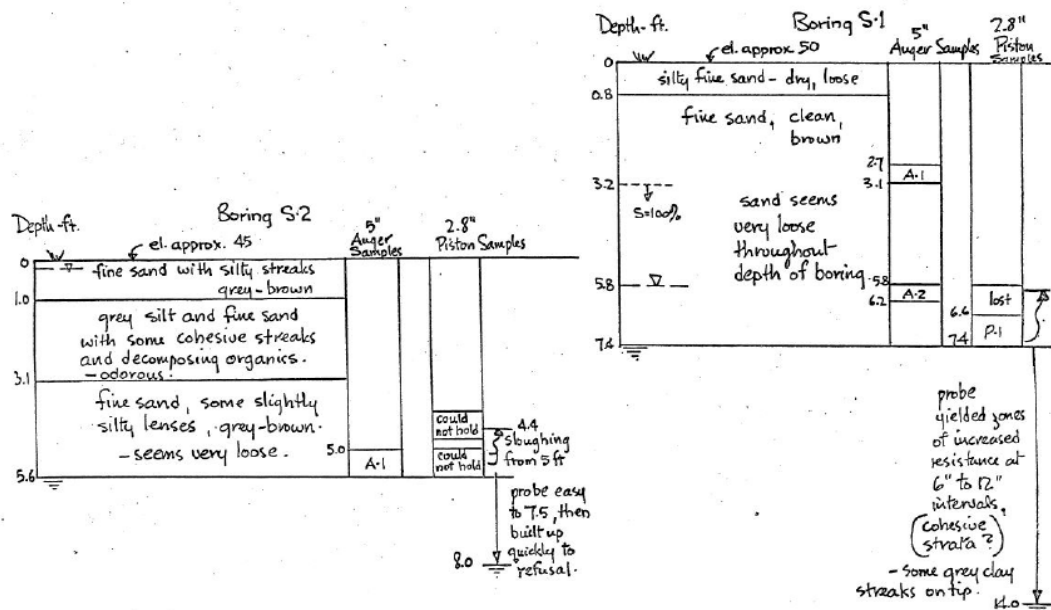 Boring S-2
Depth-ft.
el. approx. 45
5"
Auger
Samples
2.8"
Piston Samples
0
fine sand with silty streaks
grey-brown
1.0
grey silt and fine sand
with some cohesive streaks
and decomposing organics.
- odorous.
3.1
fine sand, some slightly
silty lenses, grey-brown.
- seems very loose.
5.0
A-1
5.6
could
not hold
could
not hold
4.4
sloughing
from 5 ft
probe easy
to 7.5, then
built up
quickly to
refusal.
8.0
Boring S-1
Depth-ft.
el. approx. 50
5"
Auger Samples
2.8"
Piston
Samples
0
silty fine sand - dry, loose
0.8
fine sand, clean,
brown
2.7
A-1
3.1
3.2
S=100%
sand seems
very loose
throughout
depth of boring.
5.8
5.8
A-2
6.2
lost
6.6
P-1
7.4
7.4
probe
yielded zones
of increased
resistance at
6" to 12"
intervals,
(cohesive
strata?)
- some grey clay
streaks on tip.
14.0